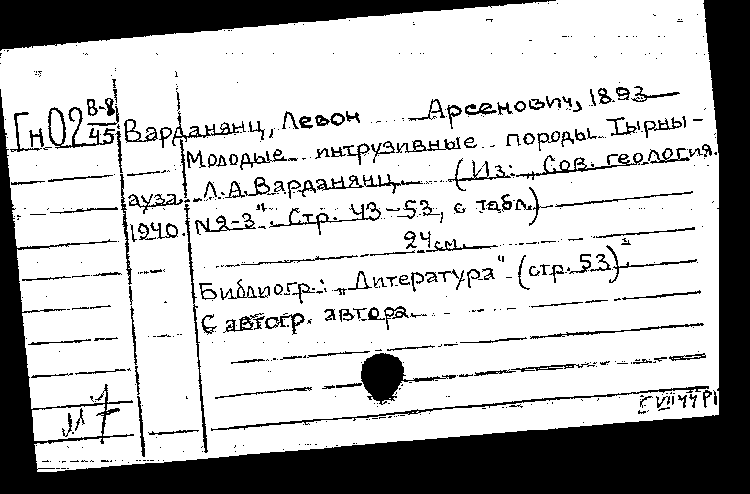 Гн02 В-8/45
Варданянц, Левон Арсенович, 1893
Молодые интрузивные породы Тырны-
ауза. Л.А. Варданянц. (Из: „Сов. геология.
1940. N2-3". Стр. 43-53, с табл.)
24 см.
Библиогр.: „Литература" (стр. 53)
С автогр. автора.